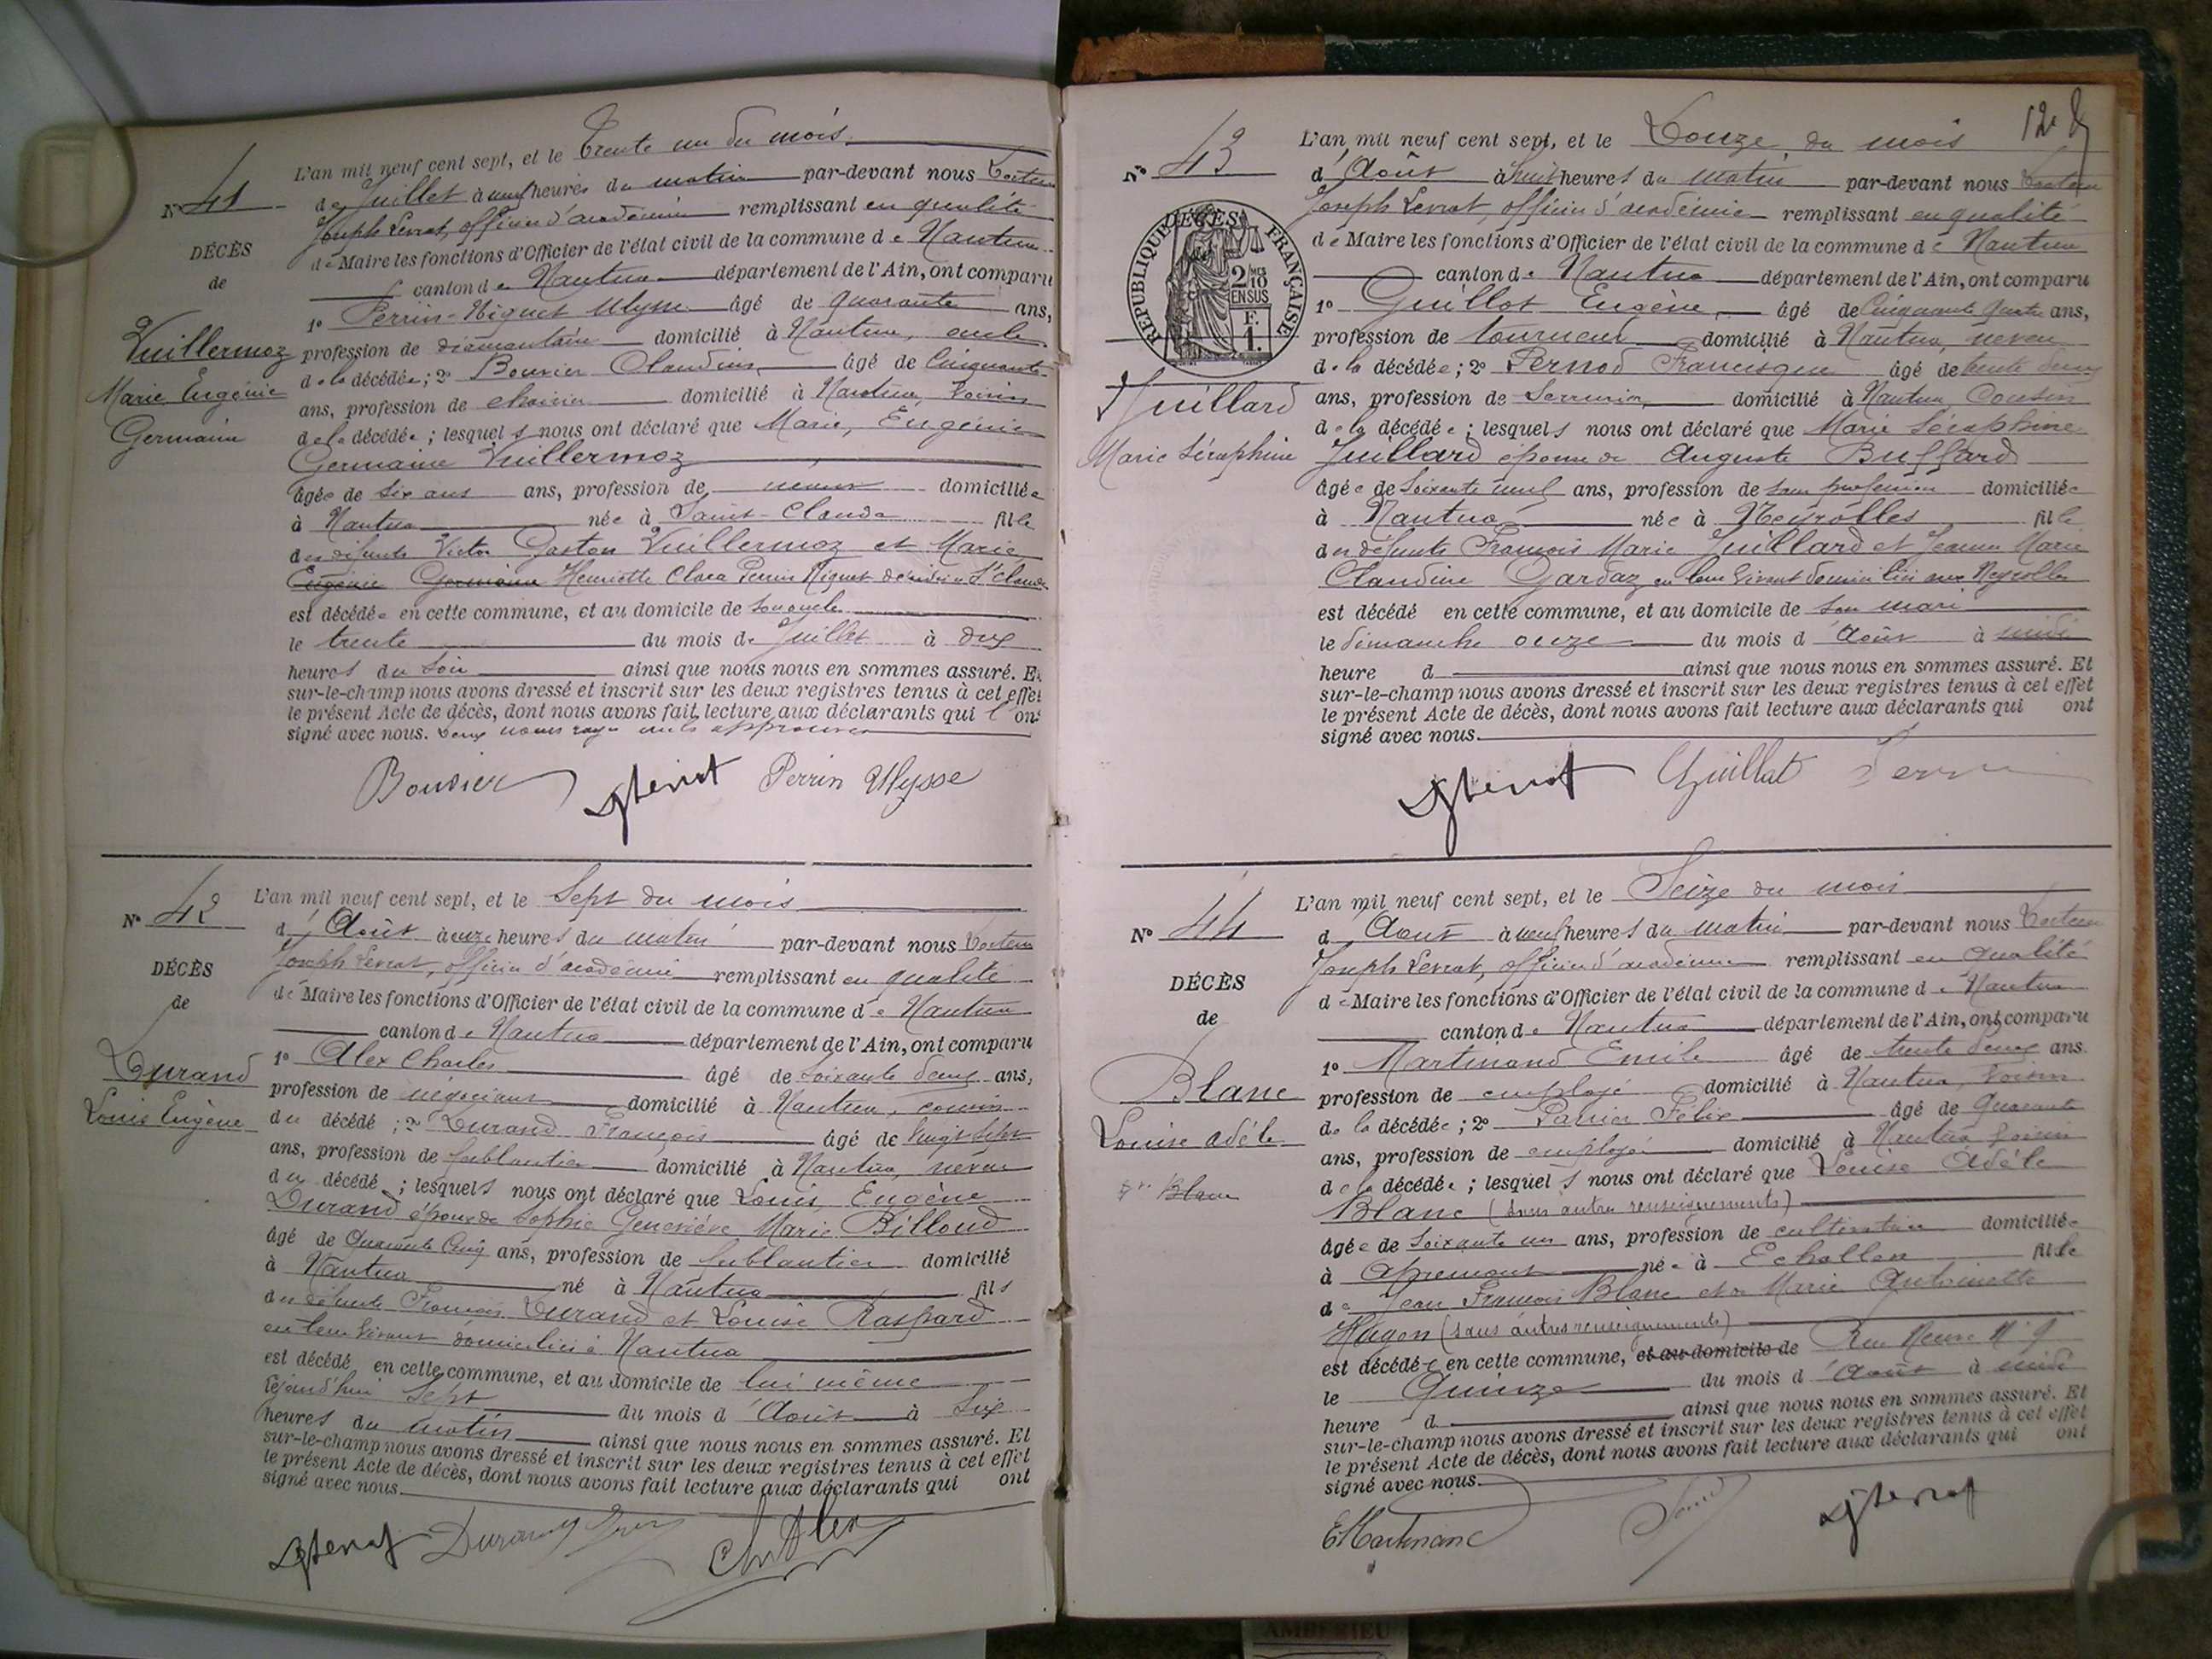 L'an mil neuf cent sept, et le Trente un du mois
N° 41
de Juillet à neuf heures du matin par-devant nous Docteur
Joseph Levrat, officier d'académie remplissant en qualité
DÉCÈS
de Maire les fonctions d'Officier de l'état civil de la commune de Nantua
de
canton de Nantua département de l'Ain, ont comparu
1° Perrin-Niquet Ulysse âgé de quarante ans,
Vuillermoz
profession de diamantaire domicilié à Nantua, oncle
de la décédée; 2° Bouvier Claudius âgé de Cinquante
Marie Eugénie
ans, profession de domicilié à Nantua, voisin
Germaine
de la décédée; lesquels nous ont déclaré que Marie, Eugénie
Germaine Vuillermoz
âgée de six ans ans, profession de domiciliée
à Nantua née à Saint-Claude fille
des défunts Victor Gaston Vuillermoz et Marie
Eugénie Germaine Henriette Clara Perrin Niquet St Claude
est décédée en cette commune, et au domicile de son oncle
le trente du mois de Juillet à dix
heures du soir ainsi que nous nous en sommes assuré. Et
sur-le-champ nous avons dressé et inscrit sur les deux registres tenus à cet effet
le présent Acte de décès, dont nous avons fait lecture aux déclarants qui l'ont
signé avec nous. Deux noms rayés nuls approuvés
Bouvier JLevrat Perrin Ulysse
L'an mil neuf cent sept, et le Sept du mois
N° 42
d'Août à onze heures du matin par-devant nous Docteur
Joseph Levrat, officier d'académie remplissant en qualité
DÉCÈS
de Maire les fonctions d'Officier de l'état civil de la commune de Nantua
de
canton de Nantua département de l'Ain, ont comparu
1° Alex Charles âgé de soixante deux ans,
Durand
profession de négociant domicilié à Nantua, cousin
Louis Eugène
du décédé; 2° Durand François âgé de vingt sept
ans, profession de ferblantier domicilié à Nantua, neveu
du décédé; lesquels nous ont déclaré que Louis, Eugène
Durand époux de Sophie Geneviève Marie Billoud
âgé de Quarante Cinq ans, profession de ferblantier domicilié
à Nantua né à Nantua fils
des défunts François Durand et Louise Raspard
en leur vivant domiciliés à Nantua
est décédé en cette commune, et au domicile de lui même
cejourd'hui Sept du mois d'Août à Six
heures du matin ainsi que nous nous en sommes assuré. Et
sur-le-champ nous avons dressé et inscrit sur les deux registres tenus à cet effet
le présent Acte de décès, dont nous avons fait lecture aux déclarants qui ont
signé avec nous.
JLevrat Durand ChAlex
L'an mil neuf cent sept, et le Douze du mois
N° 43
d'Août à huit heures du matin par-devant nous Docteur
Joseph Levrat, officier d'académie remplissant en qualité
RÉPUBLIQUE FRANÇAISE
2/10 EN SUS
F. 1.
de Maire les fonctions d'Officier de l'état civil de la commune de Nantua
canton de Nantua département de l'Ain, ont comparu
1° Guillot Eugène, âgé de Cinquante quatre ans,
profession de tourneur domicilié à Nantua, neveu
de la décédée; 2° Pernod Francisque âgé de trente deux
Juillard
ans, profession de Serrurier domicilié à Nantua, Cousin
de la décédée; lesquels nous ont déclaré que Marie Séraphine
Marie Séraphine
Juillard épouse de Auguste Buffard
âgée de soixante neuf ans, profession de sans profession domiciliée
à Nantua née à Neyrolles fille
des défunts François Marie Juillard et Jeanne Marie
Claudine Gardaz en leur vivant domiciliés aux Neyrolles
est décédé en cette commune, et au domicile de son mari
le dimanche onze du mois d'Août à midi
heure d ainsi que nous nous en sommes assuré. Et
sur-le-champ nous avons dressé et inscrit sur les deux registres tenus à cet effet
le présent Acte de décès, dont nous avons fait lecture aux déclarants qui ont
signé avec nous.
JLevrat Guillot
L'an mil neuf cent sept, et le Seize du mois
N° 44
d'Août à neuf heures du matin par-devant nous Docteur
Joseph Levrat, officier d'académie remplissant en qualité
DÉCÈS
de Maire les fonctions d'Officier de l'état civil de la commune de Nantua
de
canton de Nantua département de l'Ain, ont comparu
1° Martinand Emile âgé de trente deux ans.
Blanc
profession de employé domicilié à Nantua, voisin
Louise Adèle
de la décédée; 2° Félix âgé de Quarante
ans, profession de employé domicilié à Nantua voisin
de la décédée; lesquels nous ont déclaré que Louise Adèle
Blanc
Blanc (sans autres renseignements)
âgée de soixante un ans, profession de cultivatrice domiciliée
à Apremont née à Echallon fille
de Jean François Blanc et de Marie Antoinette
Hugon (sans autres renseignements)
est décédée en cette commune, et au domicile de Rue Neuve N° 9
le Quinze du mois d'Août à midi
heure d ainsi que nous nous en sommes assuré. Et
sur-le-champ nous avons dressé et inscrit sur les deux registres tenus à cet effet
le présent Acte de décès, dont nous avons fait lecture aux déclarants qui ont
signé avec nous.
EMartinand JLevrat